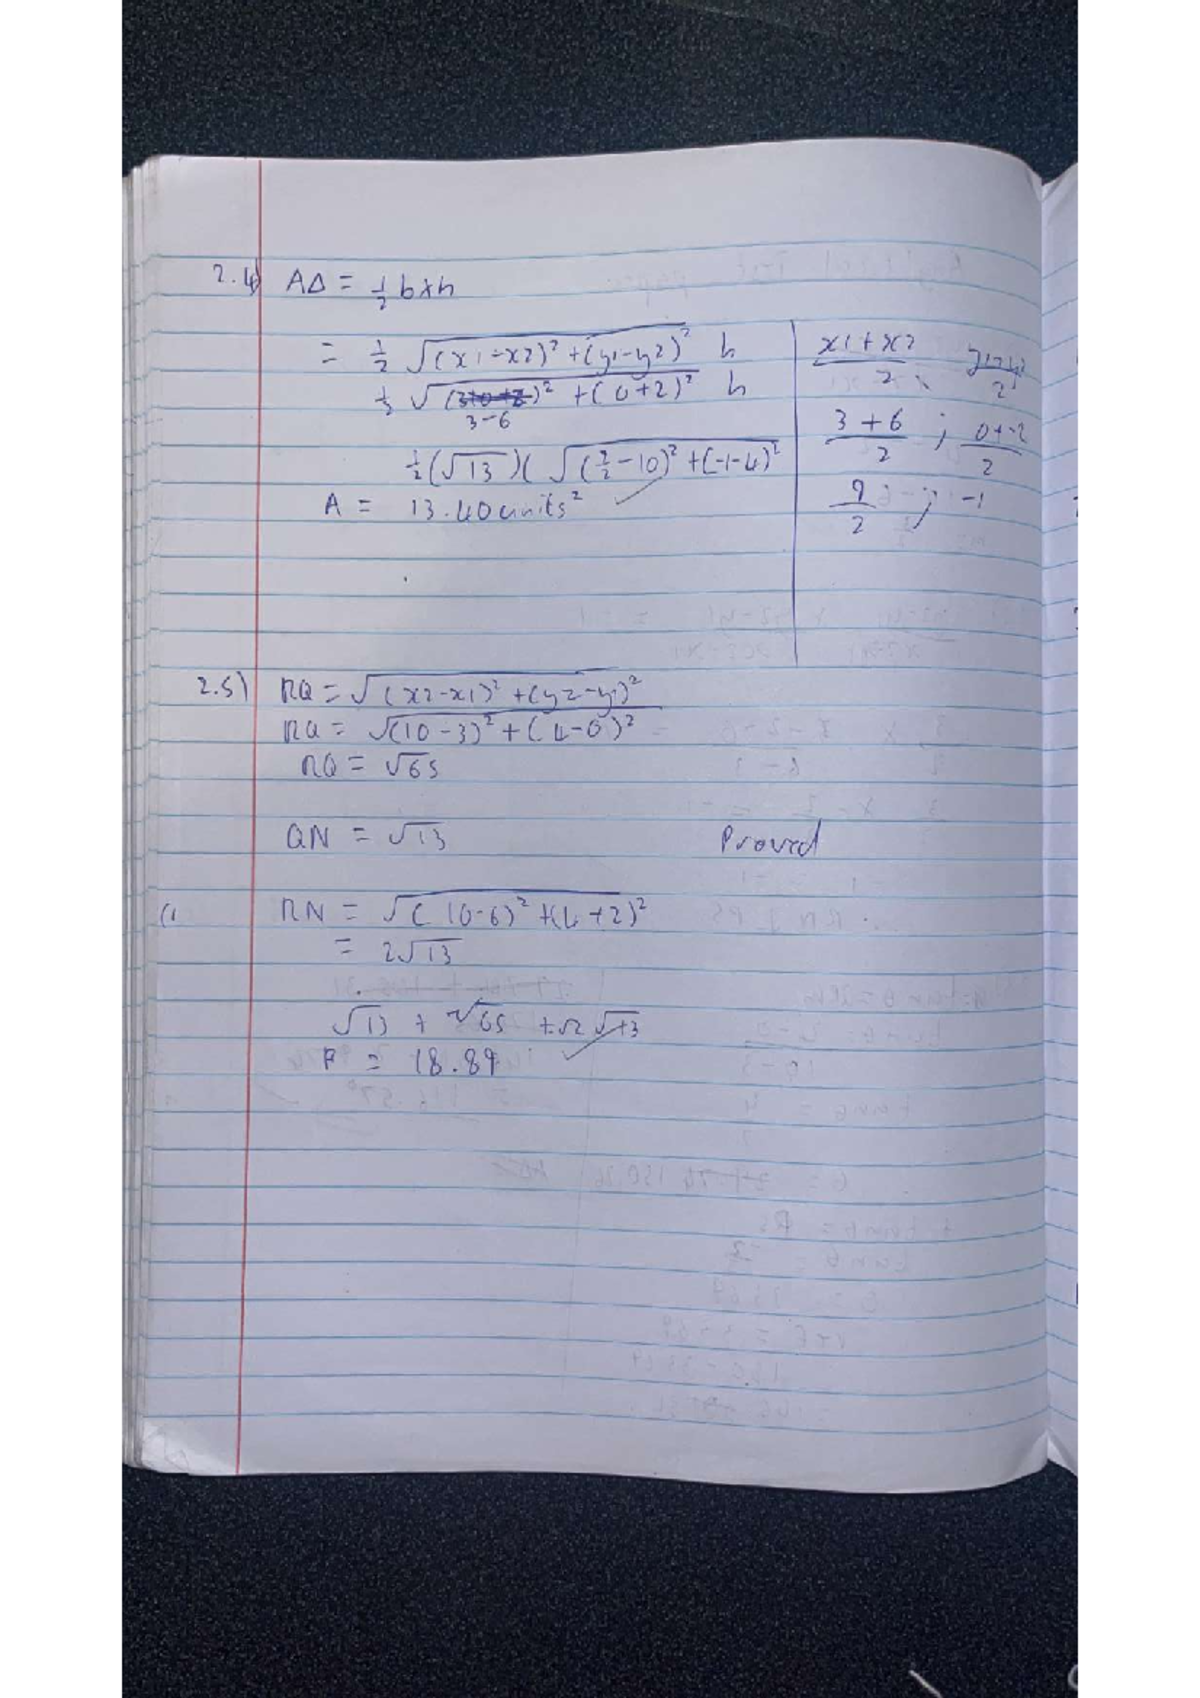 2.4) AΔ = 1/2 b×h
= 1/2 √(x1-x2)² + (y1-y2)² h
1/2 √( )² + (0+2)² h
3-6
1/2 (√13)( √(9/2-10)² + (-1-4)²
A = 13.40 units² ✓
x1+x2/2
3+6/2 ; 0+-2/2
9/2 ; -1
2.5) RQ = √(x2-x1)² + (y2-y1)²
RQ = √(10-3)² + (4-0)²
RQ = √65
QN = √13 Proved
RN = √(10-6)² + (4+2)²
= 2√13
√13 + √65 + 2√13
P = 18.89 ✓